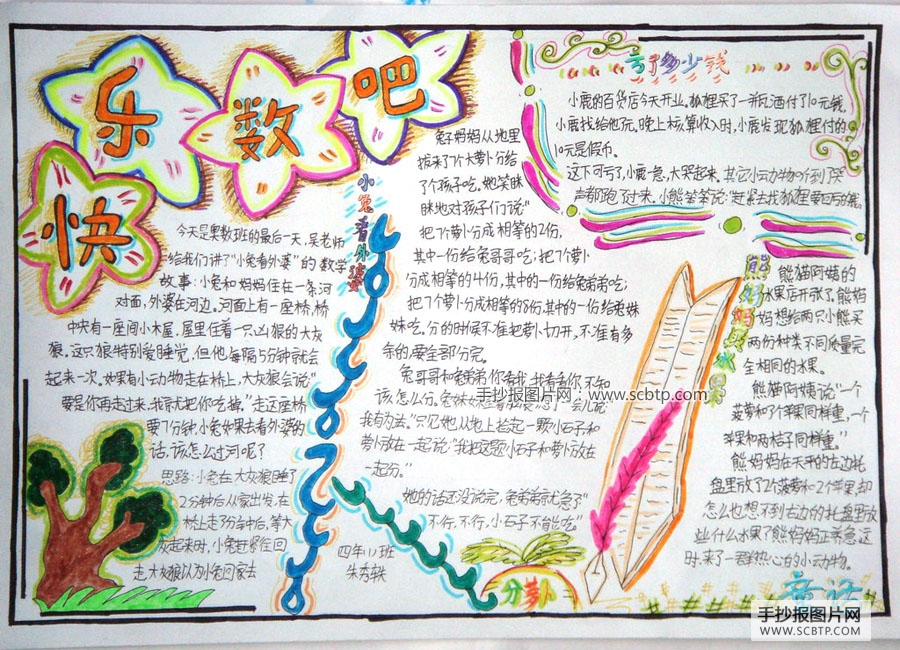 快乐数吧
小兔看外婆
今天是奥数班的最后一天,吴老师
给我们讲了“小兔看外婆”的数学
故事:小兔和妈妈住在一条河
对面,外婆在河边,河面上有一座桥,桥
中央有一座间小木屋,屋里住着一只凶狠的大灰
狼。这只狼特别爱睡觉,但他每隔5分钟就会
起来一次。如果有小动物走在桥上,大灰狼会说“
要是你再走过来,我就把你吃掉。”走这座桥
要7分钟,小兔如果去看外婆的
话,该怎么过河呢?
思路:小兔在大灰狼睡了
2分钟后从家出发,在
桥上走了3分钟后,等大
灰起来时,小兔赶紧往回
走,大灰狼以为小兔回家去
四年(1)班
分萝卜
兔子妈妈从地里
拔来了7个大萝卜分给
了个孩子吃。她笑眯
眯地对孩子们说“
把7个萝卜分成相等的2份,
其中一份给兔哥哥吃;把7个萝卜
分成相等的4份,其中的一份给兔弟弟吃;
把7个萝卜分成相等的8份,其中的一份给兔妹
妹吃。分的时候不准把萝卜切开,不准有多
余的,要全部分完。
兔哥哥和兔弟弟你看我,我看看你,不知
该怎么分。
我有办法。”只见她从地上拾起一颗小石子和
萝卜放在一起说:“我把这颗小石子和萝卜放在
一起分。”
她的话还没说完,兔弟弟就急了“
不行,不行,小石子不能吃”
亏了多少钱
小鹿的百货店今天开业。狐狸买了一瓶酒付了10元钱,
小鹿找给他7元。晚上核算收入时,小鹿发现狐狸付的
10元是假币。
这下可亏了,小鹿一急,大哭起来。其它小动物听到了哭
声都跑了过来。小熊笨笨说:“赶紧去找狐狸要回钱
熊妈妈买水果
熊猫阿姨的
水果店开张了。熊妈
妈想给两只小熊买
两份种类不同质量完
全相同的水果。
熊猫阿姨说“一个
菠萝和7个苹果同样重,一个
苹果和两桔子同样重。”
熊妈妈在天平的左边托
盘里放了2个菠萝和2个苹果,却
怎么也想不到右边的托盘里放
些什么水果了熊妈妈正着急这
时,来了一群热心的小动物。
童话
手抄报图片网 www.scbtp.com
手抄报图片网
WWW.SCBTP.COM